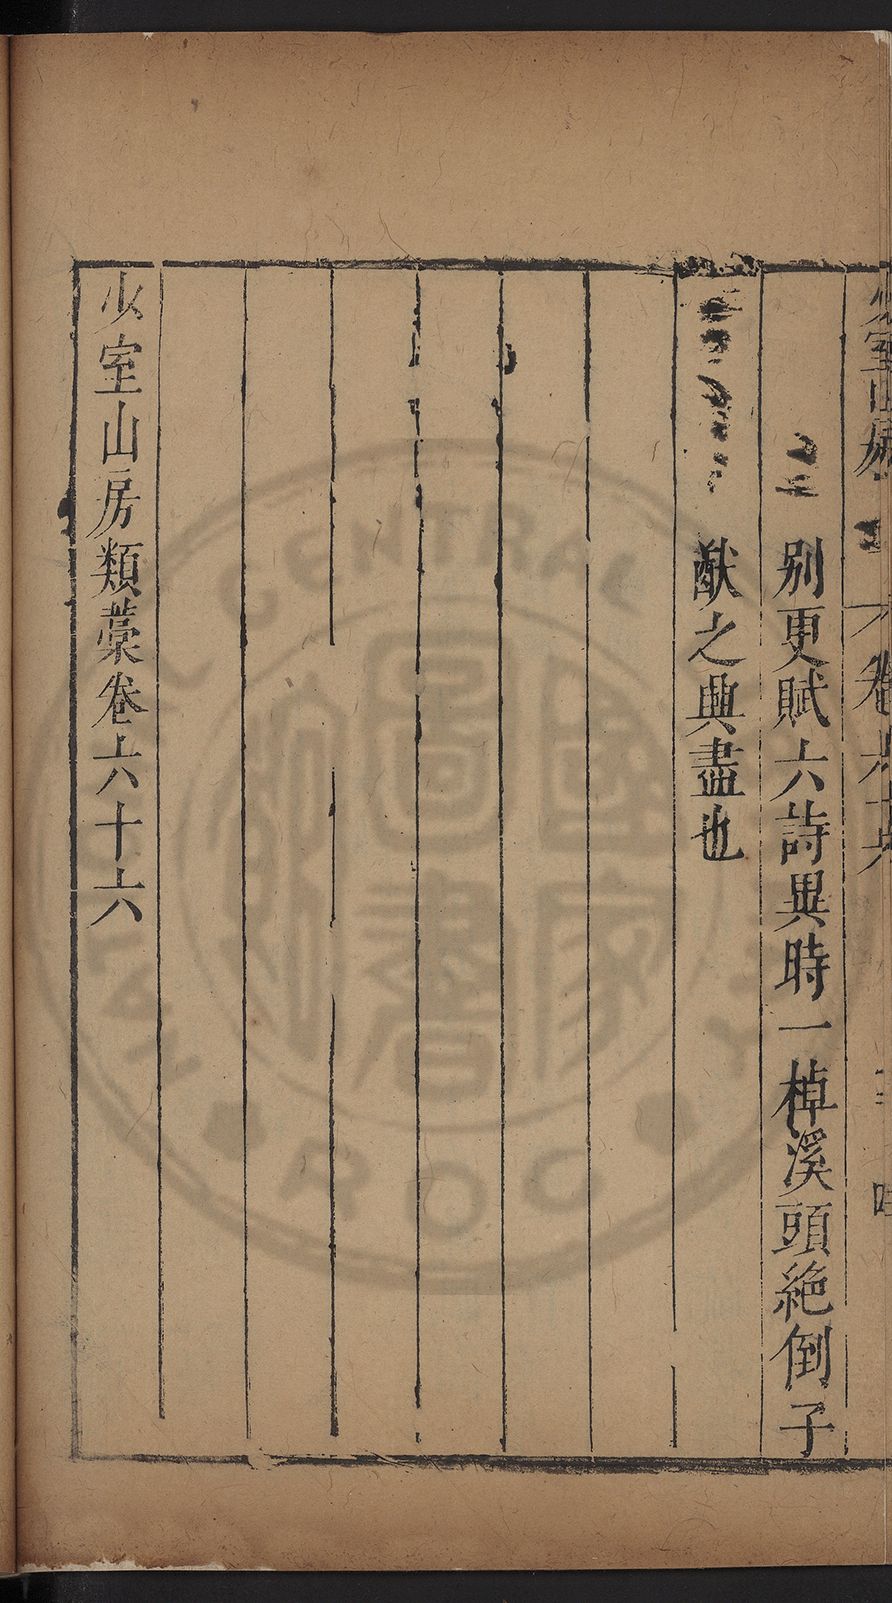 別更賦六詩異時一棹溪頭絶倒子
猷之典盡也
少室山房類藁卷六十六